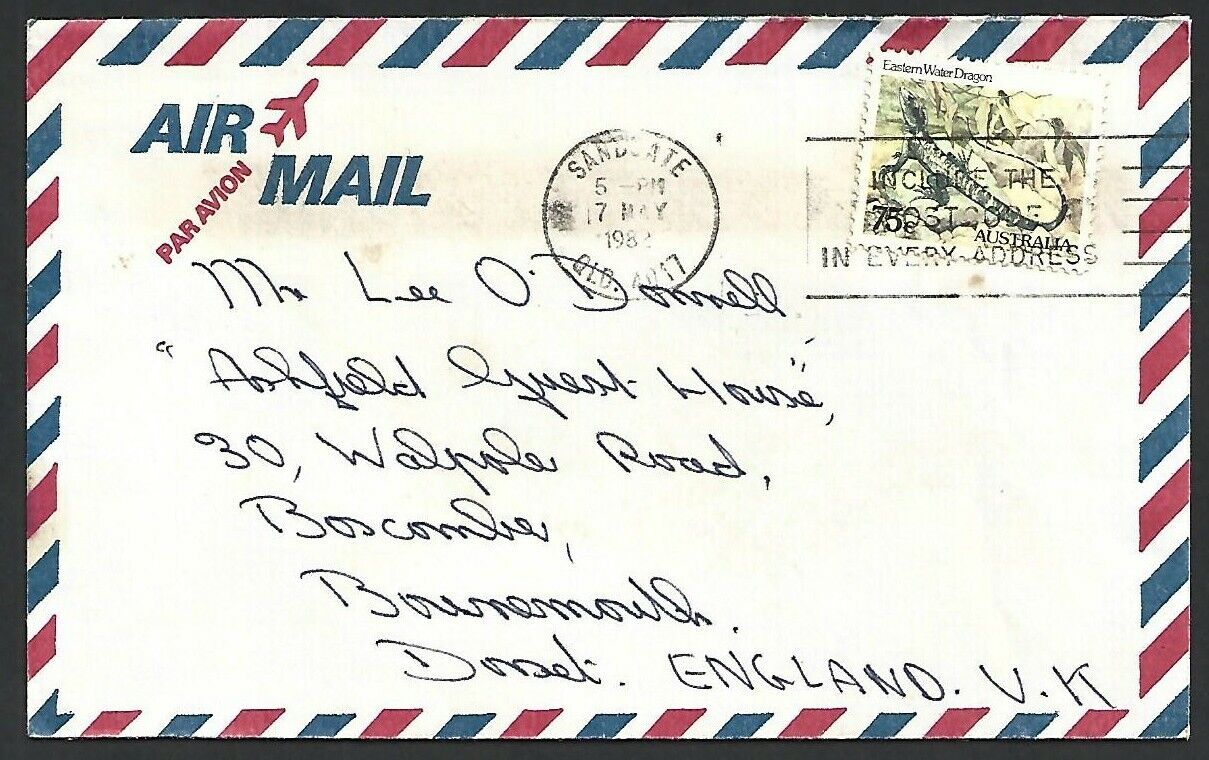 AIR
MAIL
PAR AVION
SANDGATE
5 - PM
17 MAY
1982
QLD. 4017
Eastern Water Dragon
75c
AUSTRALIA
INCLUDE THE
POSTCODE
IN EVERY ADDRESS
Mr Lee O'Donnell
"Ashfield Guest House",
30, Walpole Road,
Boscombe,
Bournemouth.
Dorset. ENGLAND. U.K